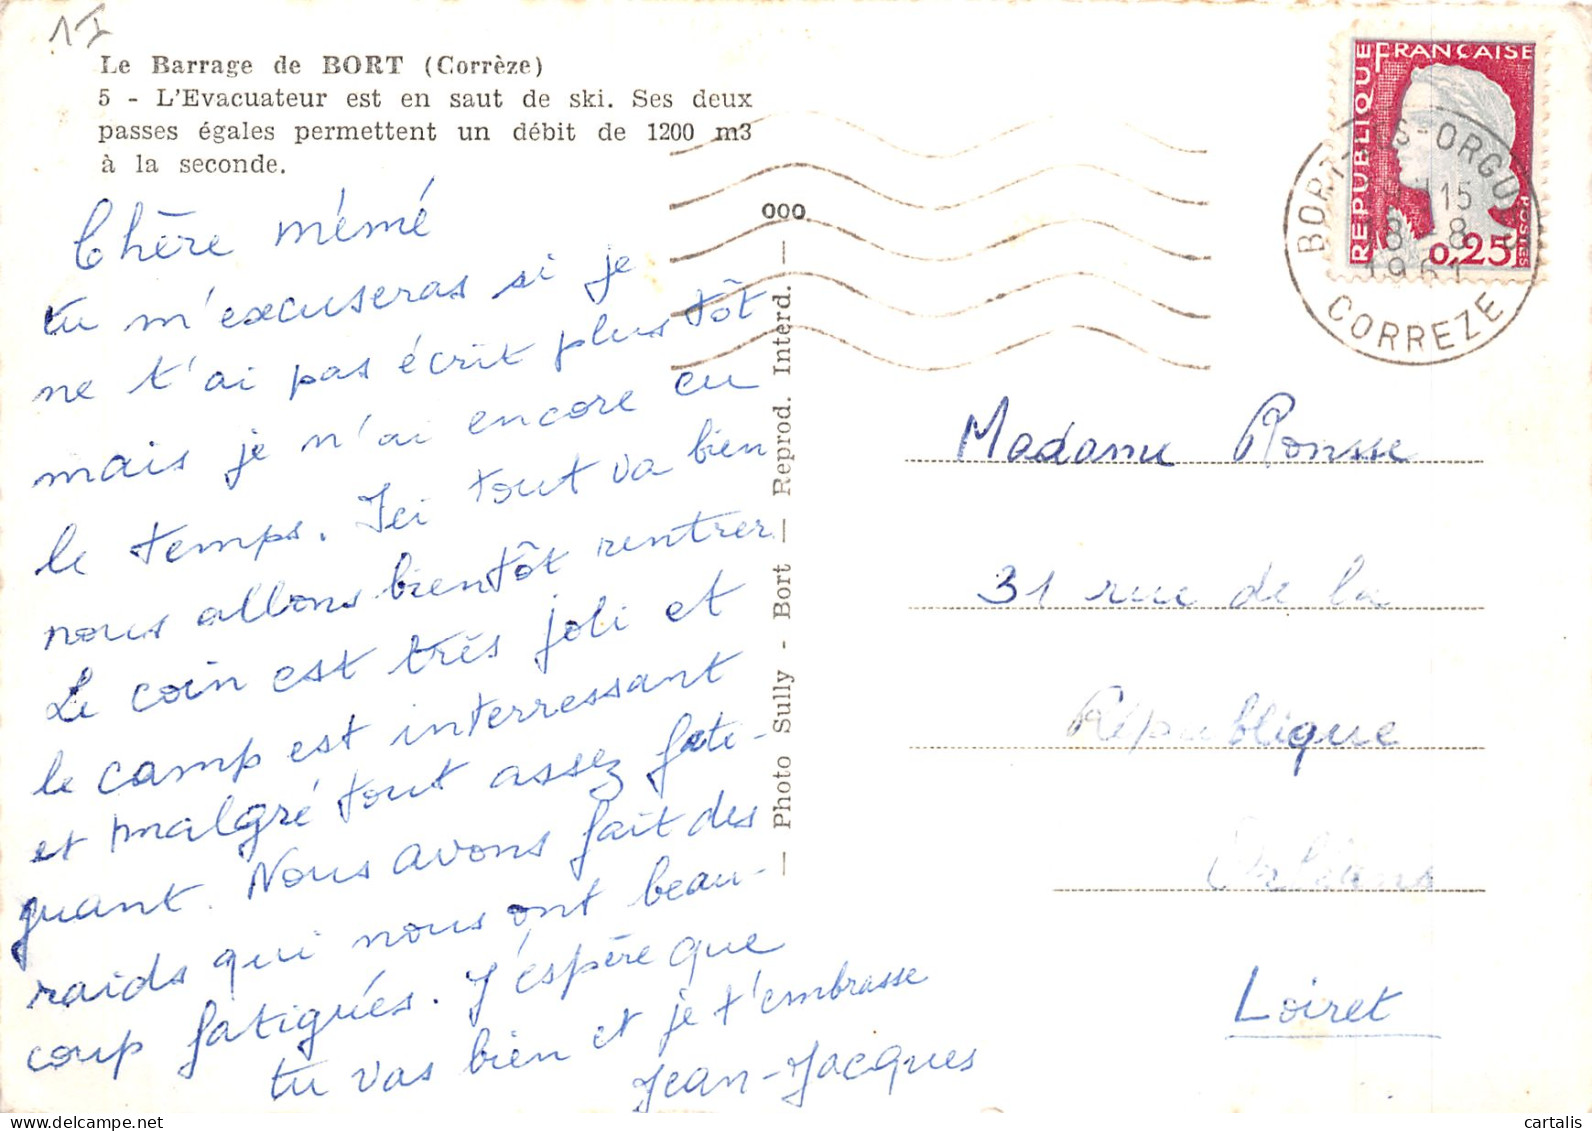 1I
Le Barrage de BORT (Corrèze)
5 - L'Evacuateur est en saut de ski. Ses deux
passes égales permettent un débit de 1200 m3
à la seconde.
Chère mémé
tu m'excuseras si je
ne t'ai pas écrit plus tôt
mais je n'ai encore eu
le temps. Ici tout va bien
nous allons bientôt rentrer
Le coin est très joli et
le camp est interressant
et malgré tout assez fati-
guant. Nous avons fait des
raids qui nous ont beau-
coup fatigués. J'éspère que
tu vas bien et je t'embrasse
Jean-Jacques
000
— Photo Sully - Bort — Reprod. Interd. —
REPUBLIQUE FRANÇAISE
POSTES
0,25
BORT-LES-ORGUES
15
18-8
1961
CORREZE
Madame Ronsse
31 rue de la
République
Orléans
Loiret
cartalis